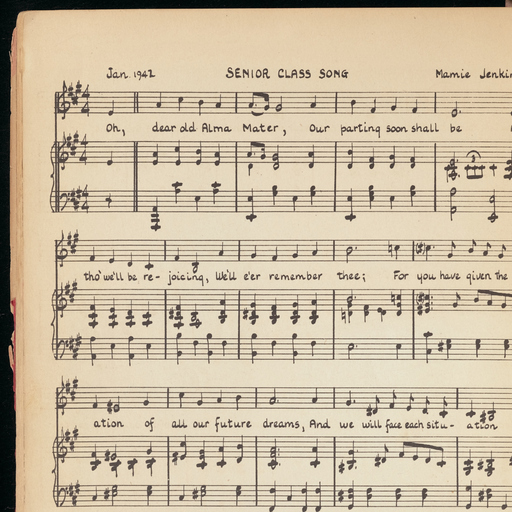 Jan. 1942 SENIOR CLASS SONG Mamie Jenkin
Oh, dear old Alma Mater, Our parting soon shall be
tho' we'll be re- joicing, We'll e'er remember thee; For you have given the
ation of all our future dreams, And we will face each situ- ation